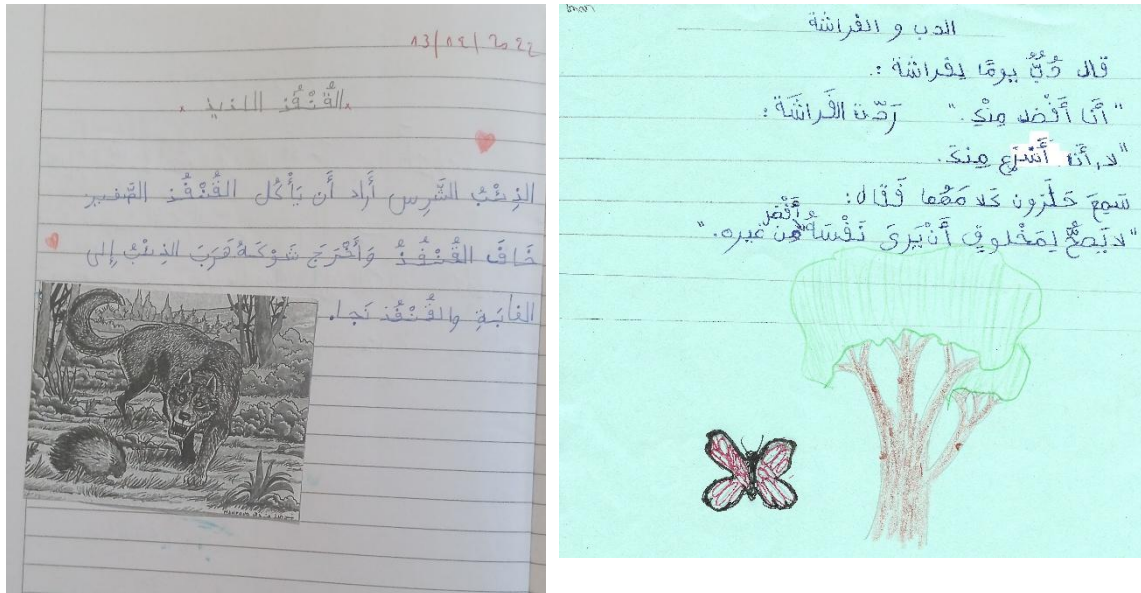 13/12/2022
القُنْفُذ الذيذ.
الذِئْبُ الشَّرِس أَراد أَن يَأْكُل القُنْفُذ الصَّغير
خَافَ القُنْفُذُ وَأَخْرَجَ شَوْكَهُ هَرَبَ الذِئبُ إلى
الغابَةِ والقُنْفُذ نَجا.
الدب و الفراشة
قال دُبٌّ يومًا لِفراشة :.
"أَنَا أَفْضل مِنْكِ." رَدّت الفَراشَة:
"لا، أنا أَسْرَع مِنكَ.
سَمِعَ حَلَزون كَلامَهُما فَقال:
"لا يَصحُّ لِمَخْلوقٍ أَنْ يَرى نَفْسَهُ أَفْضل من غيره."